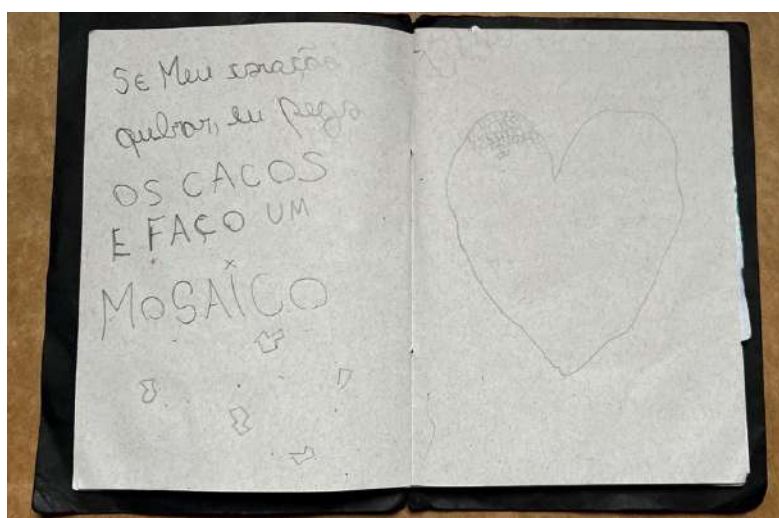 Se Meu coração
quebrar, eu pego
OS CACOS
E FAÇO UM
MOSAÍCO